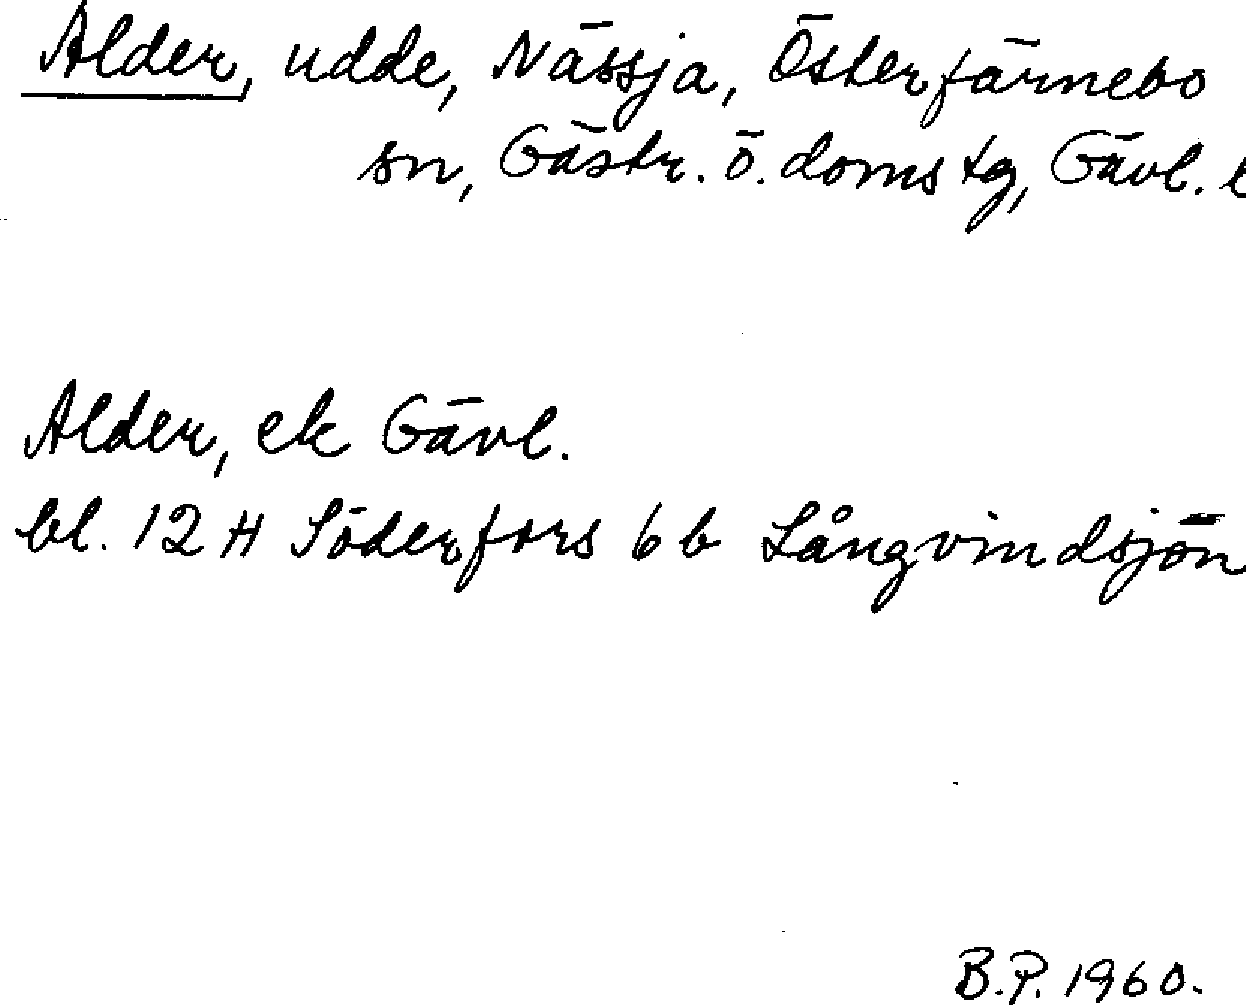 Alder, udde, Nässja, Österfärnebo
sn, Gästr. ö. domstg, Gävl. l
Alder, ek Gävl.
bl. 12 H Söderfors 6 b Långvindsjön
B.P. 1960.